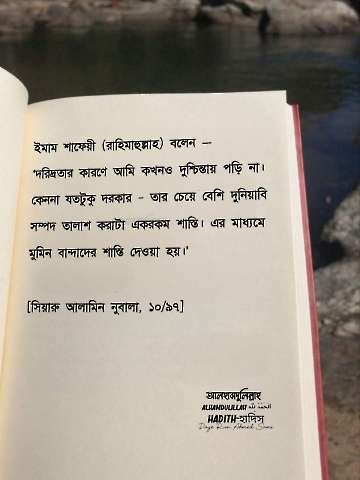 ইমাম শাফেয়ী (রাহিমাহুল্লাহ) বলেন —
'দরিদ্রতার কারণে আমি কখনও দুশ্চিন্তায় পড়ি না।
কেননা যতটুকু দরকার - তার চেয়ে বেশি দুনিয়াবি
সম্পদ তালাশ করাটা একরকম শাস্তি। এর মাধ্যমে
মুমিন বান্দাদের শাস্তি দেওয়া হয়।'
[সিয়ারু আলামিন নুবালা, ১০/৯৭]
আলহামদুলিল্লাহ
ALHAMDULILLAH الحمد لله
HADITH-হাদিস